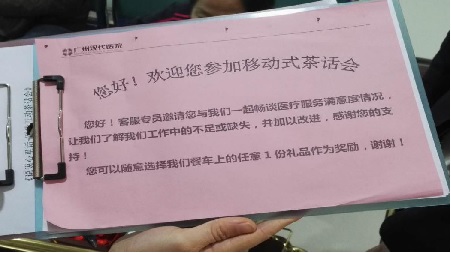 广州汉代医院
您好！欢迎您参加移动式茶话会
您好！客服专员邀请您与我们一起畅谈医疗服务满意度情况，
让我们了解我们工作中的不足或缺失，并加以改进，感谢您的支
持！
您可以随意选择我们餐车上的任意1份礼品作为奖励，谢谢！